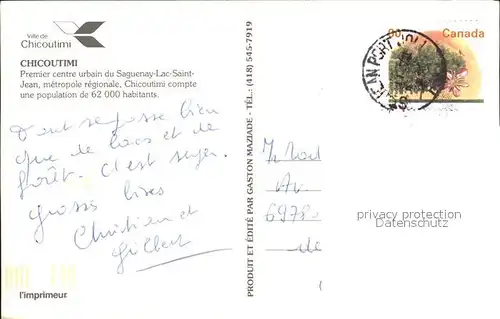 Ville de
Chicoutimi
CHICOUTIMI
Premier centre urbain du Saguenay-Lac-Saint-
Jean, métropole régionale, Chicoutimi compte
une population de 62 000 habitants.
Tout se passe bien
que de lacs et de
forêt. C'est super.
grosses bises
Christien et
Gilbert
l'imprimeur
PRODUIT ET ÉDITÉ PAR GASTON MAZIADE - TÉL.: (418) 545-7919
90
Canada
JEAN PORT JOLI
Av.
privacy protection
Datenschutz
de